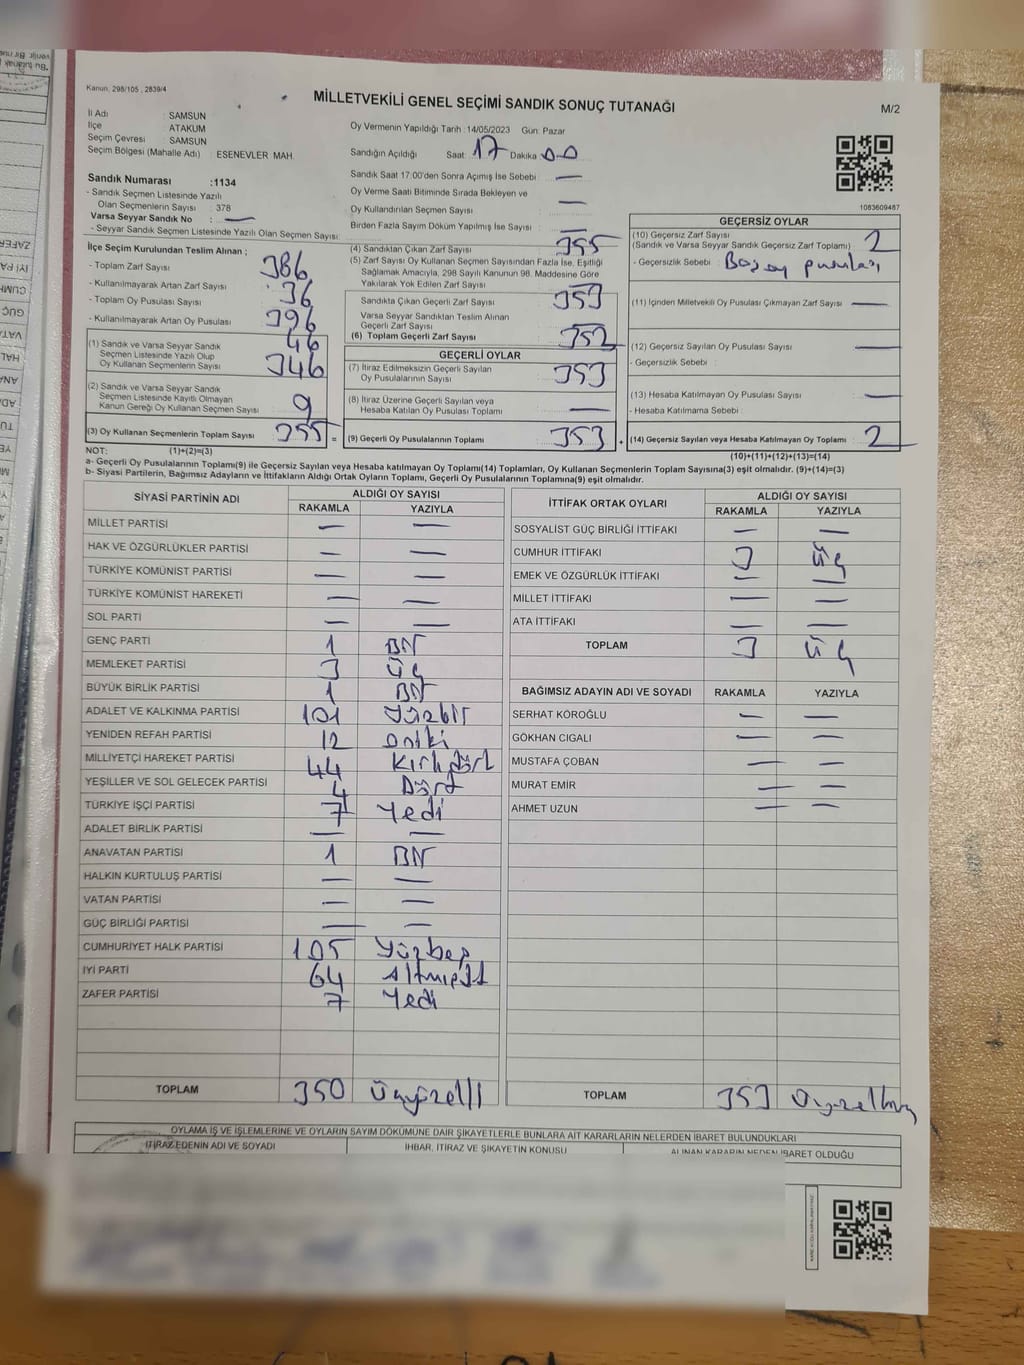 Kanun, 298/105 , 2839/4
MİLLETVEKİLİ GENEL SEÇİMİ SANDIK SONUÇ TUTANAĞI
M/2
İl Adı : SAMSUN
İlçe ATAKUM
Seçim Çevresi : SAMSUN
Seçim Bölgesi (Mahalle Adı) : ESENEVLER MAH.
Oy Vermenin Yapıldığı Tarih :14/05/2023 Gün: Pazar
Sandığın Açıldığı Saat: 17 Dakika 00
Sandık Saat 17:00'den Sonra Açımış İse Sebebi : —
Oy Verme Saati Bitiminde Sırada Bekleyen ve
Oy Kullandırılan Seçmen Sayısı : —
Birden Fazla Sayım Döküm Yapılmış İse Sayısı : —
1083609487
Sandık Numarası :1134
- Sandık Seçmen Listesinde Yazılı
Olan Seçmenlerin Sayısı : 378
Varsa Seyyar Sandık No : —
- Seyyar Sandık Seçmen Listesinde Yazılı Olan Seçmen Sayısı:
İlçe Seçim Kurulundan Teslim Alınan ;
- Toplam Zarf Sayısı : 386
- Kullanılmayarak Artan Zarf Sayısı : 36
- Toplam Oy Pusulası Sayısı : 396
- Kullanılmayarak Artan Oy Pusulası : 46
(1) Sandık ve Varsa Seyyar Sandık
Seçmen Listesinde Yazılı Olup
Oy Kullanan Seçmenlerin Sayısı : 346
(2) Sandık ve Varsa Seyyar Sandık
Seçmen Listesinde Kayıtlı Olmayan
Kanun Gereği Oy Kullanan Seçmen Sayısı : 9
(3) Oy Kullanan Seçmenlerin Toplam Sayısı : 355 =
(4) Sandıktan Çıkan Zarf Sayısı : 355
(5) Zarf Sayısı Oy Kullanan Seçmen Sayısından Fazla İse, Eşitliği
Sağlamak Amacıyla, 298 Sayılı Kanunun 98. Maddesine Göre
Yakılarak Yok Edilen Zarf Sayısı
Sandıkta Çıkan Geçerli Zarf Sayısı : 353
Varsa Seyyar Sandıktan Teslim Alınan
Geçerli Zarf Sayısı
(6) Toplam Geçerli Zarf Sayısı : 353
GEÇERLİ OYLAR
(7) İtiraz Edilmeksizin Geçerli Sayılan
Oy Pusulalarının Sayısı : 353
(8) İtiraz Üzerine Geçerli Sayılan veya
Hesaba Katılan Oy Pusulası Toplamı : —
(9) Geçerli Oy Pusulalarının Toplamı : 353 +
GEÇERSİZ OYLAR
(10) Geçersiz Zarf Sayısı
(Sandık ve Varsa Seyyar Sandık Geçersiz Zarf Toplamı) : 2
- Geçersizlik Sebebi : Boş oy pusulası
(11) İçinden Milletvekili Oy Pusulası Çıkmayan Zarf Sayısı : —
(12) Geçersiz Sayılan Oy Pusulası Sayısı : —
- Geçersizlik Sebebi :
(13) Hesaba Katılmayan Oy Pusulası Sayısı : —
- Hesaba Katılmama Sebebi :
(14) Geçersiz Sayılan veya Hesaba Katılmayan Oy Toplamı : 2
NOT: (1)+(2)=(3)
(10)+(11)+(12)+(13)=(14)
a- Geçerli Oy Pusulalarının Toplamı(9) ile Geçersiz Sayılan veya Hesaba katılmayan Oy Toplamı(14) Toplamları, Oy Kullanan Seçmenlerin Toplam Sayısına(3) eşit olmalıdır. (9)+(14)=(3)
b- Siyasi Partilerin, Bağımsız Adayların ve İttifakların Aldığı Ortak Oyların Toplamı, Geçerli Oy Pusulalarının Toplamına(9) eşit olmalıdır.
SİYASİ PARTİNİN ADI ALDIĞI OY SAYISI
RAKAMLA YAZIYLA
MİLLET PARTİSİ — —
HAK VE ÖZGÜRLÜKLER PARTİSİ — —
TÜRKİYE KOMÜNİST PARTİSİ — —
TÜRKİYE KOMÜNİST HAREKETİ — —
SOL PARTİ — —
GENÇ PARTİ 1 Bir
MEMLEKET PARTİSİ 3 Üç
BÜYÜK BİRLİK PARTİSİ 1 Bir
ADALET VE KALKINMA PARTİSİ 101 Yüzbir
YENİDEN REFAH PARTİSİ 12 Oniki
MİLLİYETÇİ HAREKET PARTİSİ 44 Kırkdört
YEŞİLLER VE SOL GELECEK PARTİSİ 4 Dört
TÜRKİYE İŞÇİ PARTİSİ 7 Yedi
ADALET BİRLİK PARTİSİ — —
ANAVATAN PARTİSİ 1 Bir
HALKIN KURTULUŞ PARTİSİ — —
VATAN PARTİSİ — —
GÜÇ BİRLİĞİ PARTİSİ — —
CUMHURİYET HALK PARTİSİ 105 Yüzbeş
İYİ PARTİ 64 Altmışdört
ZAFER PARTİSİ 7 Yedi
TOPLAM 350 Üçyüzelli
İTTİFAK ORTAK OYLARI ALDIĞI OY SAYISI
RAKAMLA YAZIYLA
SOSYALİST GÜÇ BİRLİĞİ İTTİFAKI — —
CUMHUR İTTİFAKI 3 Üç
EMEK VE ÖZGÜRLÜK İTTİFAKI — —
MİLLET İTTİFAKI — —
ATA İTTİFAKI — —
TOPLAM 3 Üç
BAĞIMSIZ ADAYIN ADI VE SOYADI RAKAMLA YAZIYLA
SERHAT KÖROĞLU — —
GÖKHAN CIGALI — —
MUSTAFA ÇOBAN — —
MURAT EMİR — —
AHMET UZUN — —
TOPLAM 353
OYLAMA İŞ VE İŞLEMLERİNE VE OYLARIN SAYIM DÖKÜMÜNE DAİR ŞİKAYETLERLE BUNLARA AİT KARARLARIN NELERDEN İBARET BULUNDUKLARI
İTİRAZ EDENİN ADI VE SOYADI İHBAR, İTİRAZ VE ŞİKAYETİN KONUSU ALINAN KARARIN NEDEN İBARET OLDUĞU